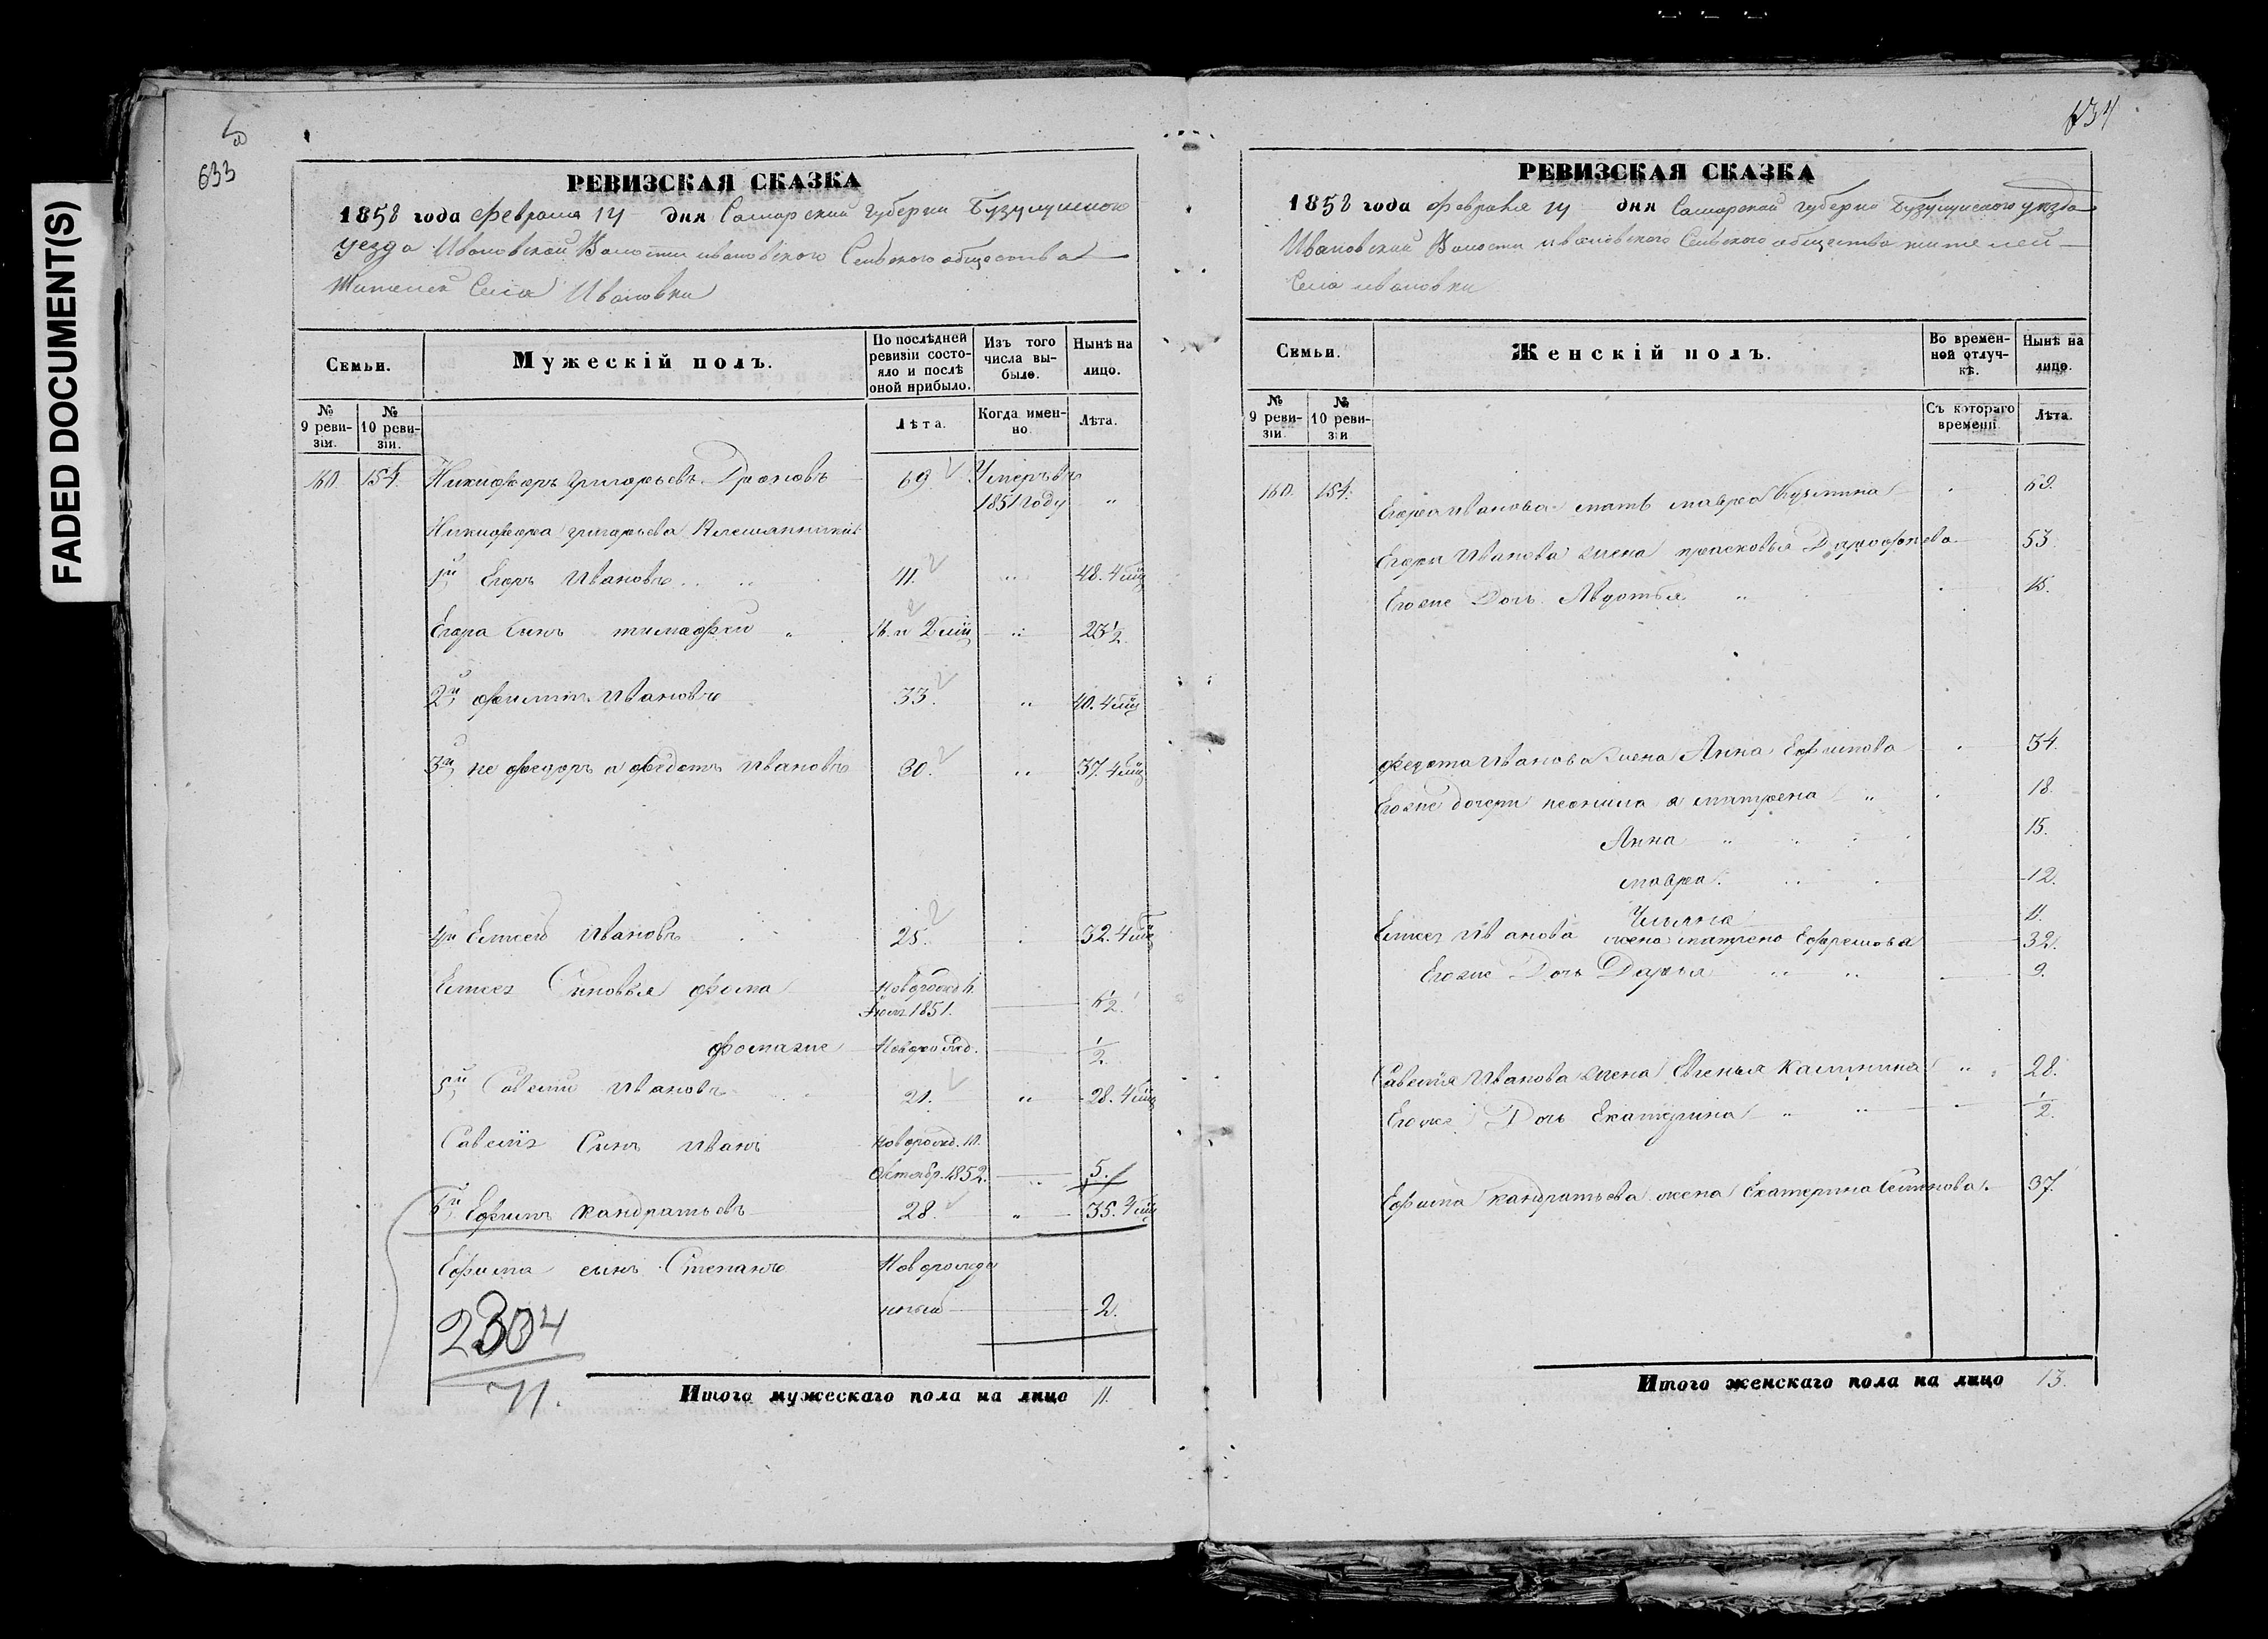 FADED DOCUMENT(S)
633
РЕВИЗСКАЯ СКАЗКА
1858 года февраля 14 дня Самарской губерни Бузулуцкого
уезда Ивановской Волости ивановского Сельского общества
Жителей Села Ивановки
Семьи.
Мужескій полъ.
По послѣдней ревизіи состояло и послѣ оной прибыло.
Изъ того числа выбыло.
Нынѣ на лицо.
№ 9 ревизіи.
№ 10 ревизіи.
Лѣта.
Когда именно.
Лѣта.
160. 154. Никифоръ григорьевъ Дроновъ 69 Умеръ въ
1851 году "
Никифора григорьева Племянники
1й Егоръ Ивановъ 41. " 48. 4 мц
Егора Сынъ тимофеи " 16. и 2 мц " 23 1/2.
2й филипъ Ивановъ 33. " 40. 4 мц
3й не федоръ а федотъ Ивановъ 30. " 37. 4 мц
4й Елисей Ивановъ 25. 32. 4 мц
Елисея Сыновья фома новорожд.
1851. 6 1/2.
фома же Новорожд. 1/2
5й Савелий Ивановъ 21. " 28. 4 мц
Савелия Сынъ Иванъ новорожд. 10.
Октябр. 1852. " 5.
6й Ефимъ Кандратьевъ 28. " 35. 4 мц
Ефима сынъ Степанъ Новорожде
нный 2.
2304
71.
Итого мужескаго пола на лицо 11.
634
РЕВИЗСКАЯ СКАЗКА
1858 года февраля 14 дня Самарской губерни Бузулуцкого уезда
Ивановской Волости ивановского Сельского общества жителей
Села ивановки
Семьи.
Женскій полъ.
Во временной отлучкѣ.
Нынѣ на лицо.
№ 9 ревизіи
№ 10 ревизіи
Съ котораго времени
Лѣта.
160. 154. Егора иванова мать мавра Кузмина 69.
Егора Иванова жена прасковья Дарофеева 53
Его же Дочь Авдотья " 15.
федота Иванова жена Анна Ефимова 34.
Его же дочери неонила а матрена " 18.
Анна " 15.
мавра. 12.
Ульяна 11.
Елисея Иванова жена матрена Ефремова 32.
Его же Дочь Дарья " " 9.
Савелия Иванова жена Евгенья Калинина " 28.
Его же Дочь Екатерина " " 1/2.
Ефима кандратьева жена Екатерина Семенова. 37.
Итого женскаго пола на лицо 13.